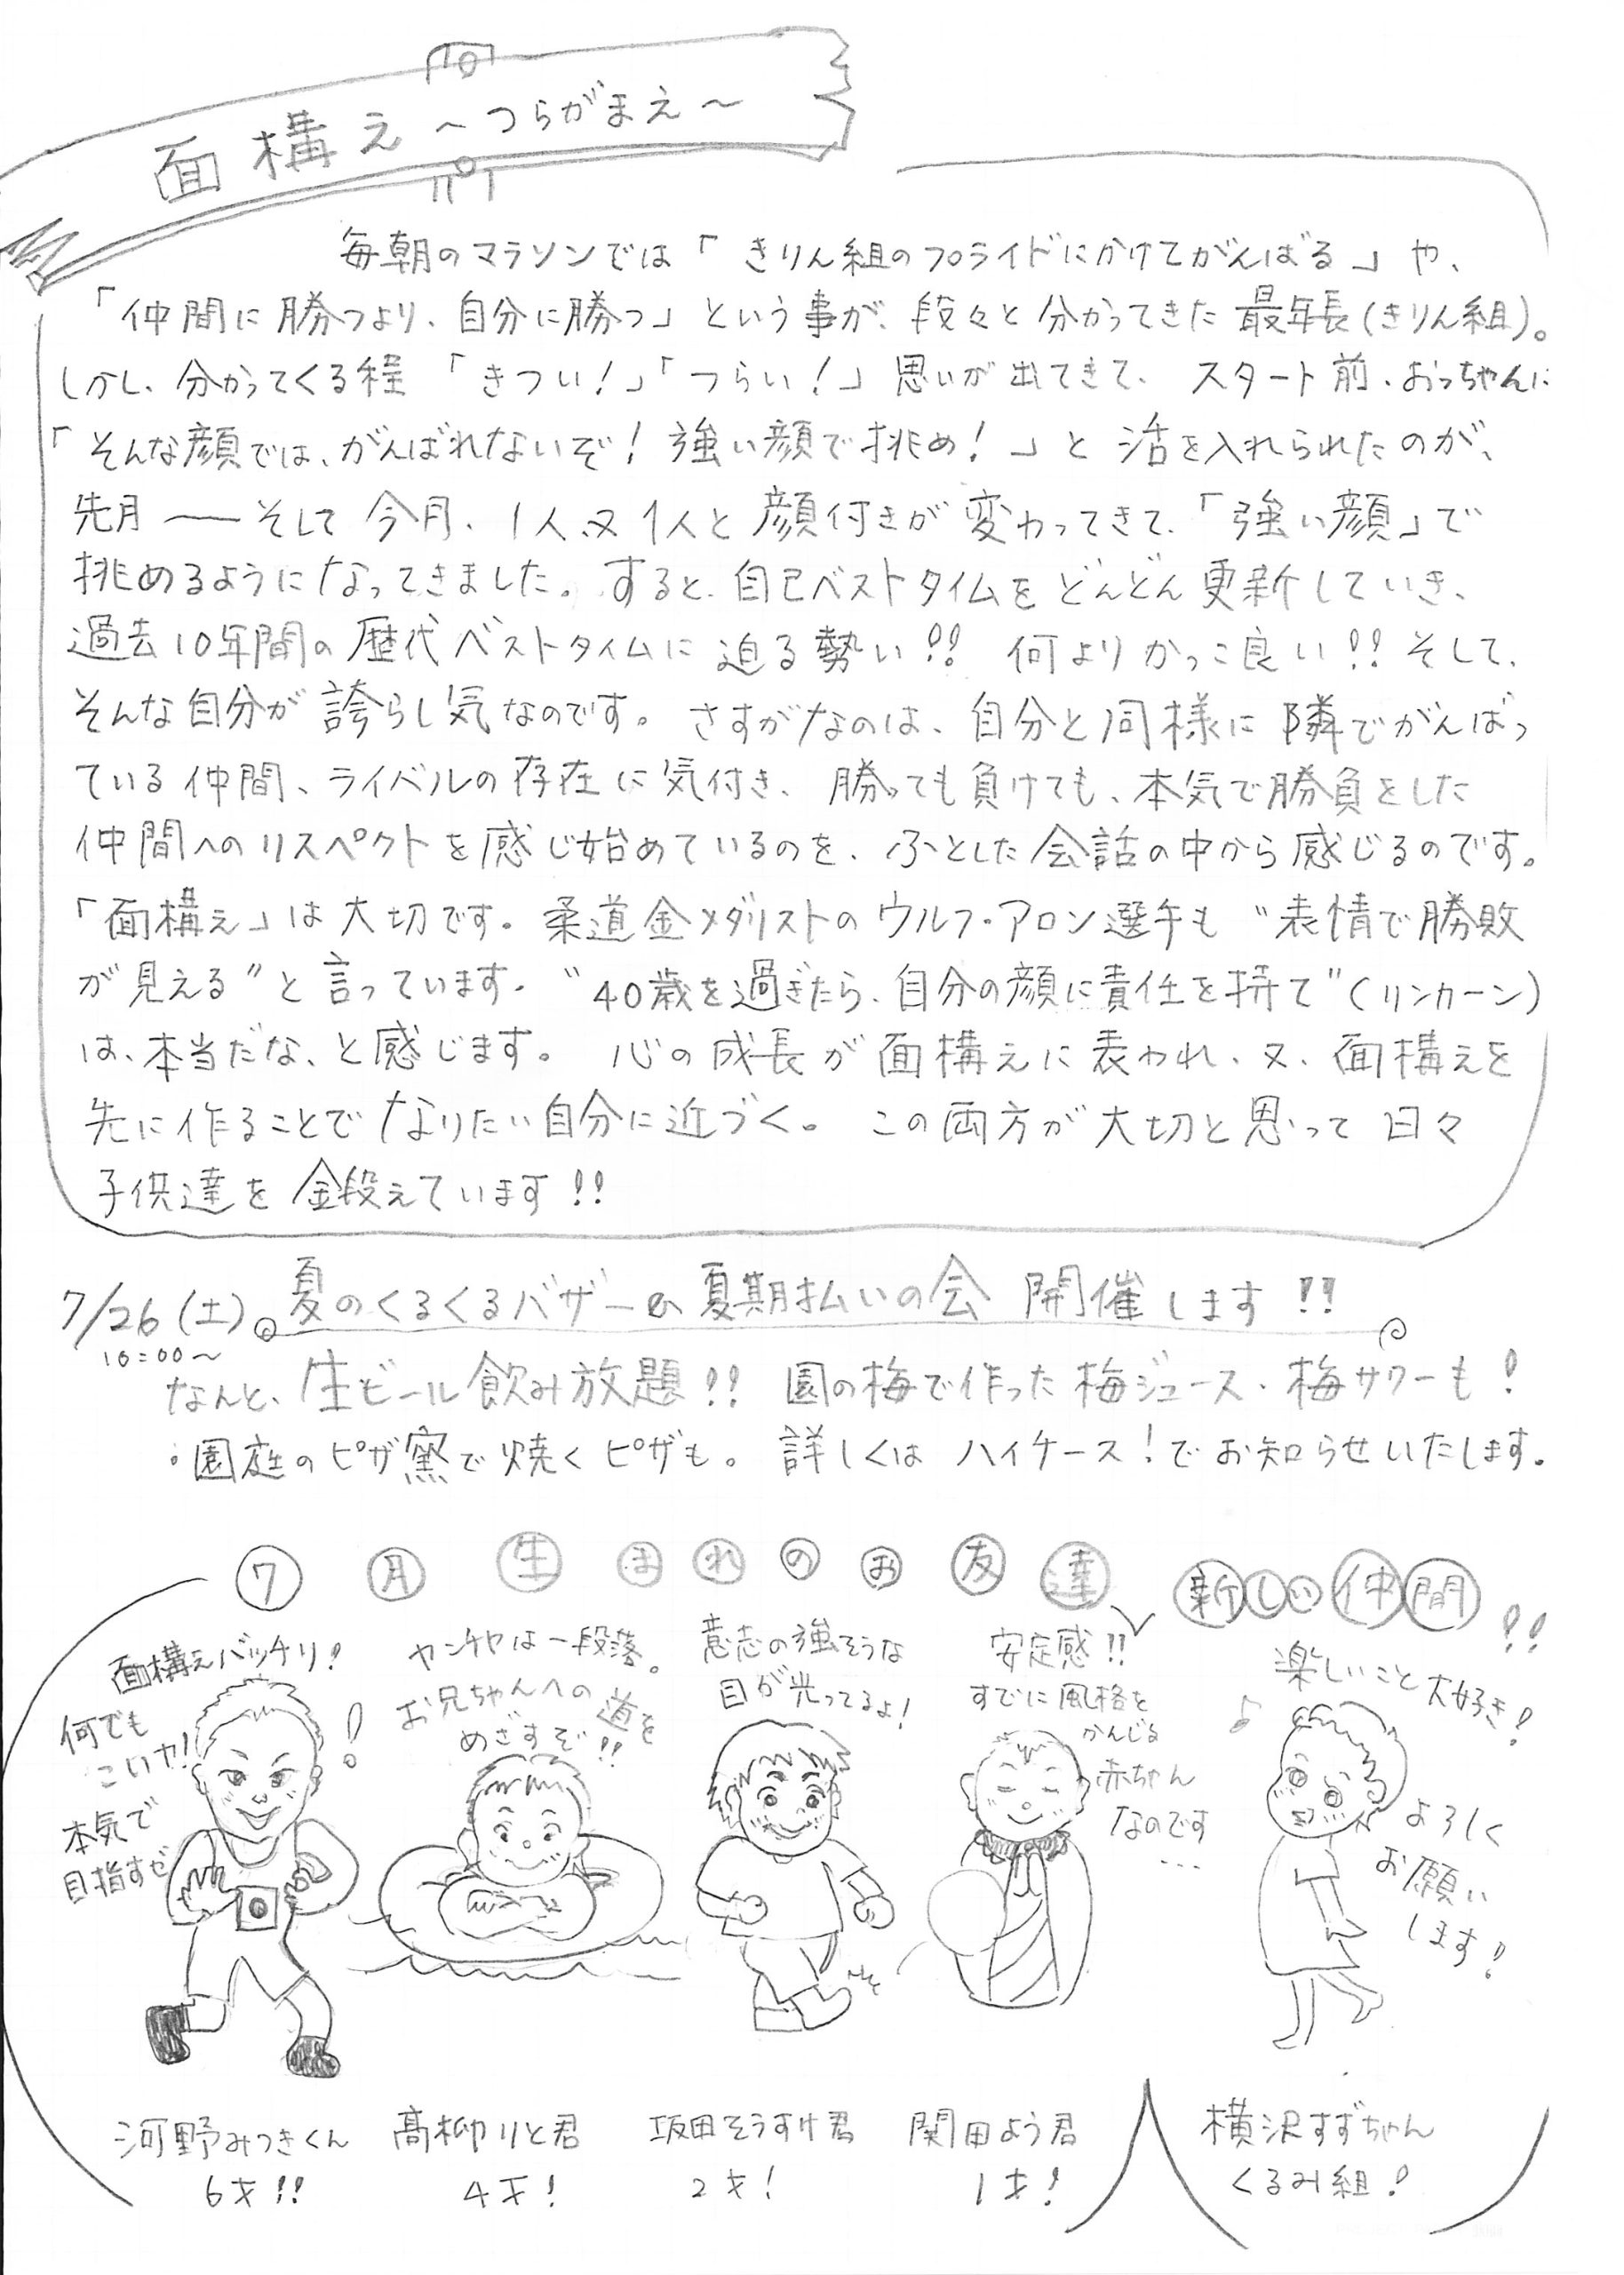 面構え〜つらがまえ〜
毎朝のマラソンでは「きりん組のプライドにかけてがんばる」や、
「仲間に勝つより、自分に勝つ」という事が、段々と分かってきた最年長(きりん組)。
しかし、分かってくる程「きつい!」「つらい!」思いが出てきて、スタート前、おっちゃんに
「そんな顔では、がんばれないぞ!強い顔で挑め!」と活を入れられたのが、
先月──そして今月、1人又1人と顔付きが変わってきて、「強い顔」で
挑めるようになってきました。すると、自己ベストタイムをどんどん更新していき、
過去10年間の歴代ベストタイムに迫る勢い!!何よりかっこ良い!!そして、
そんな自分が誇らし気なのです。さすがなのは、自分と同様に隣でがんばっ
ている仲間、ライバルの存在に気付き、勝っても負けても、本気で勝負をした
仲間へのリスペクトを感じ始めているのを、ふとした会話の中から感じるのです。
「面構え」は大切です。柔道金メダリストのウルフ・アロン選手も〝表情で勝敗
が見える〟と言っています。〝40歳を過ぎたら、自分の顔に責任を持て〟(リンカーン)
は、本当だな、と感じます。心の成長が面構えに表われ、又、面構えを
先に作ることでなりたい自分に近づく。この両方が大切と思って日々
子供達を鍛えています!!
7/26(土)。夏のくるくるバザー&夏期払いの会 開催します!!
10:00〜
なんと、生ビール飲み放題!!園の梅で作った梅ジュース・梅サワーも!
・園庭のピザ窯で焼くピザも。詳しくはハイケース!でお知らせいたします。
7月生まれのお友達
新しい仲間!!
面構えバッチリ!
何でも
こいヤ!
本気で
目指すぜ!
ヤンチャは一段落。
お兄ちゃんへの道を
めざすぞ!!
意志の強そうな
目が光ってるよ!
安定感!!
すでに風格を
かんじる
赤ちゃん
なのです
…
楽しいこと大好き!
よろしく
お願い
します!
河野みつきくん
6才!!
髙柳りと君
4才!
坂田そうすけ君
2才!
関田よう君
1才!
横沢すずちゃん
くるみ組!